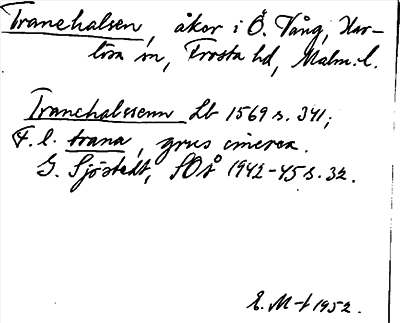 Tranehalsen, åkor i Ö. Vång, Har-
lösa sn, Frosta hd, Malm. l.
Tranehalssenn Lb 1569 s. 341;
F. l. trana, grus cinerea.
G. Sjöstedt, SOÅ 1942-45 s. 32.
E. M-t 1952.